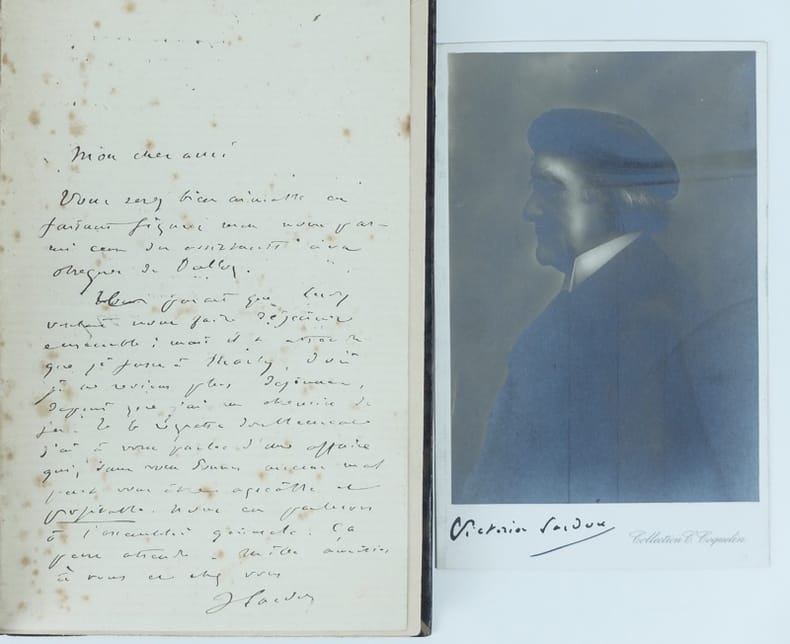 Mon cher ami
Vous serez bien aimable en
faisant figurer mon nom par-
mi ceux des assistants aux
obsèques de
que
nous faire déjeuner
ensemble ; mais il a
que je fusse à Marly, d'où
je ne reviens plus déjeuner,
depuis que j'ai un chemin de
fer. Je le regrette doublement
j'ai à vous parler d'une affaire
qui, sans vous donner aucun mal
peut vous être agréable et
profitable. Nous en parlerons
à l'assemblée générale. Ça
peut attendre. Mille amitiés
à vous et chez vous
V Sardou
Victorien Sardou
Collection C. Coquelin